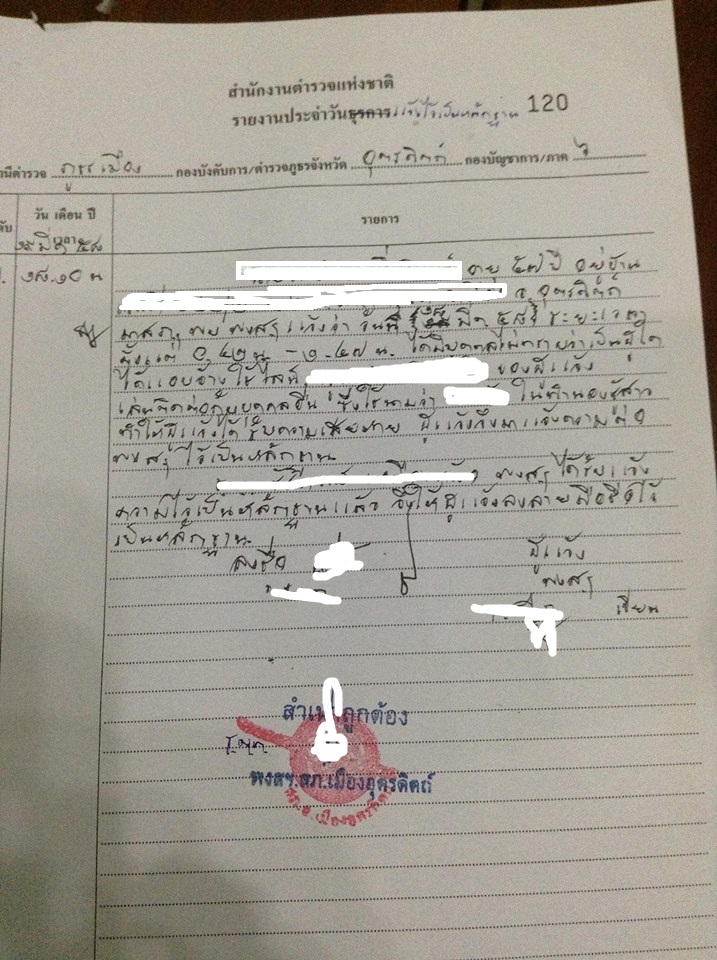 สำนักงานตำรวจแห่งชาติ
รายงานประจำวันธุรการ แจ้งไว้เป็นหลักฐาน 120
นีตำรวจ ภูธรเมือง กองบังคับการ/ตำรวจภูธรจังหวัด อุตรดิตถ์ กองบัญชาการ/ภาค ๖
ดับ วัน เดือน ปี รายการ
เวลา
๑๘.๑๐ น อายุ ๕๗ ปี อยู่บ้าน
จ.อุตรดิตถ์
มาสภ. พบ พงสฯ แจ้งว่า วันที่ ระยะเวลา
ตั้งแต่ น. - น. ได้มีบุคคลไม่ทราบว่าเป็นผู้ใด
ได้แอบอ้างใช้ไลน์ ของผู้แจ้ง
ติดต่อกับบุคคลอื่น ซึ่งใช้นามว่า ในทำนองชู้สาว
ทำให้ผู้แจ้งได้รับความเสียหาย ผู้แจ้งจึงมาแจ้งความต่อ
พงสฯ ไว้เป็นหลักฐาน
พงสฯ ได้รับแจ้ง
ความไว้เป็นหลักฐานแล้ว จึงให้ผู้แจ้งลงลายมือชื่อไว้
เป็นหลักฐาน
ลงชื่อ ผู้แจ้ง
พงสฯ
เขียน
สำเนาถูกต้อง
พงสฯ.สภ.เมืองอุตรดิตถ์
สภ.อ.เมืองอุตรดิตถ์